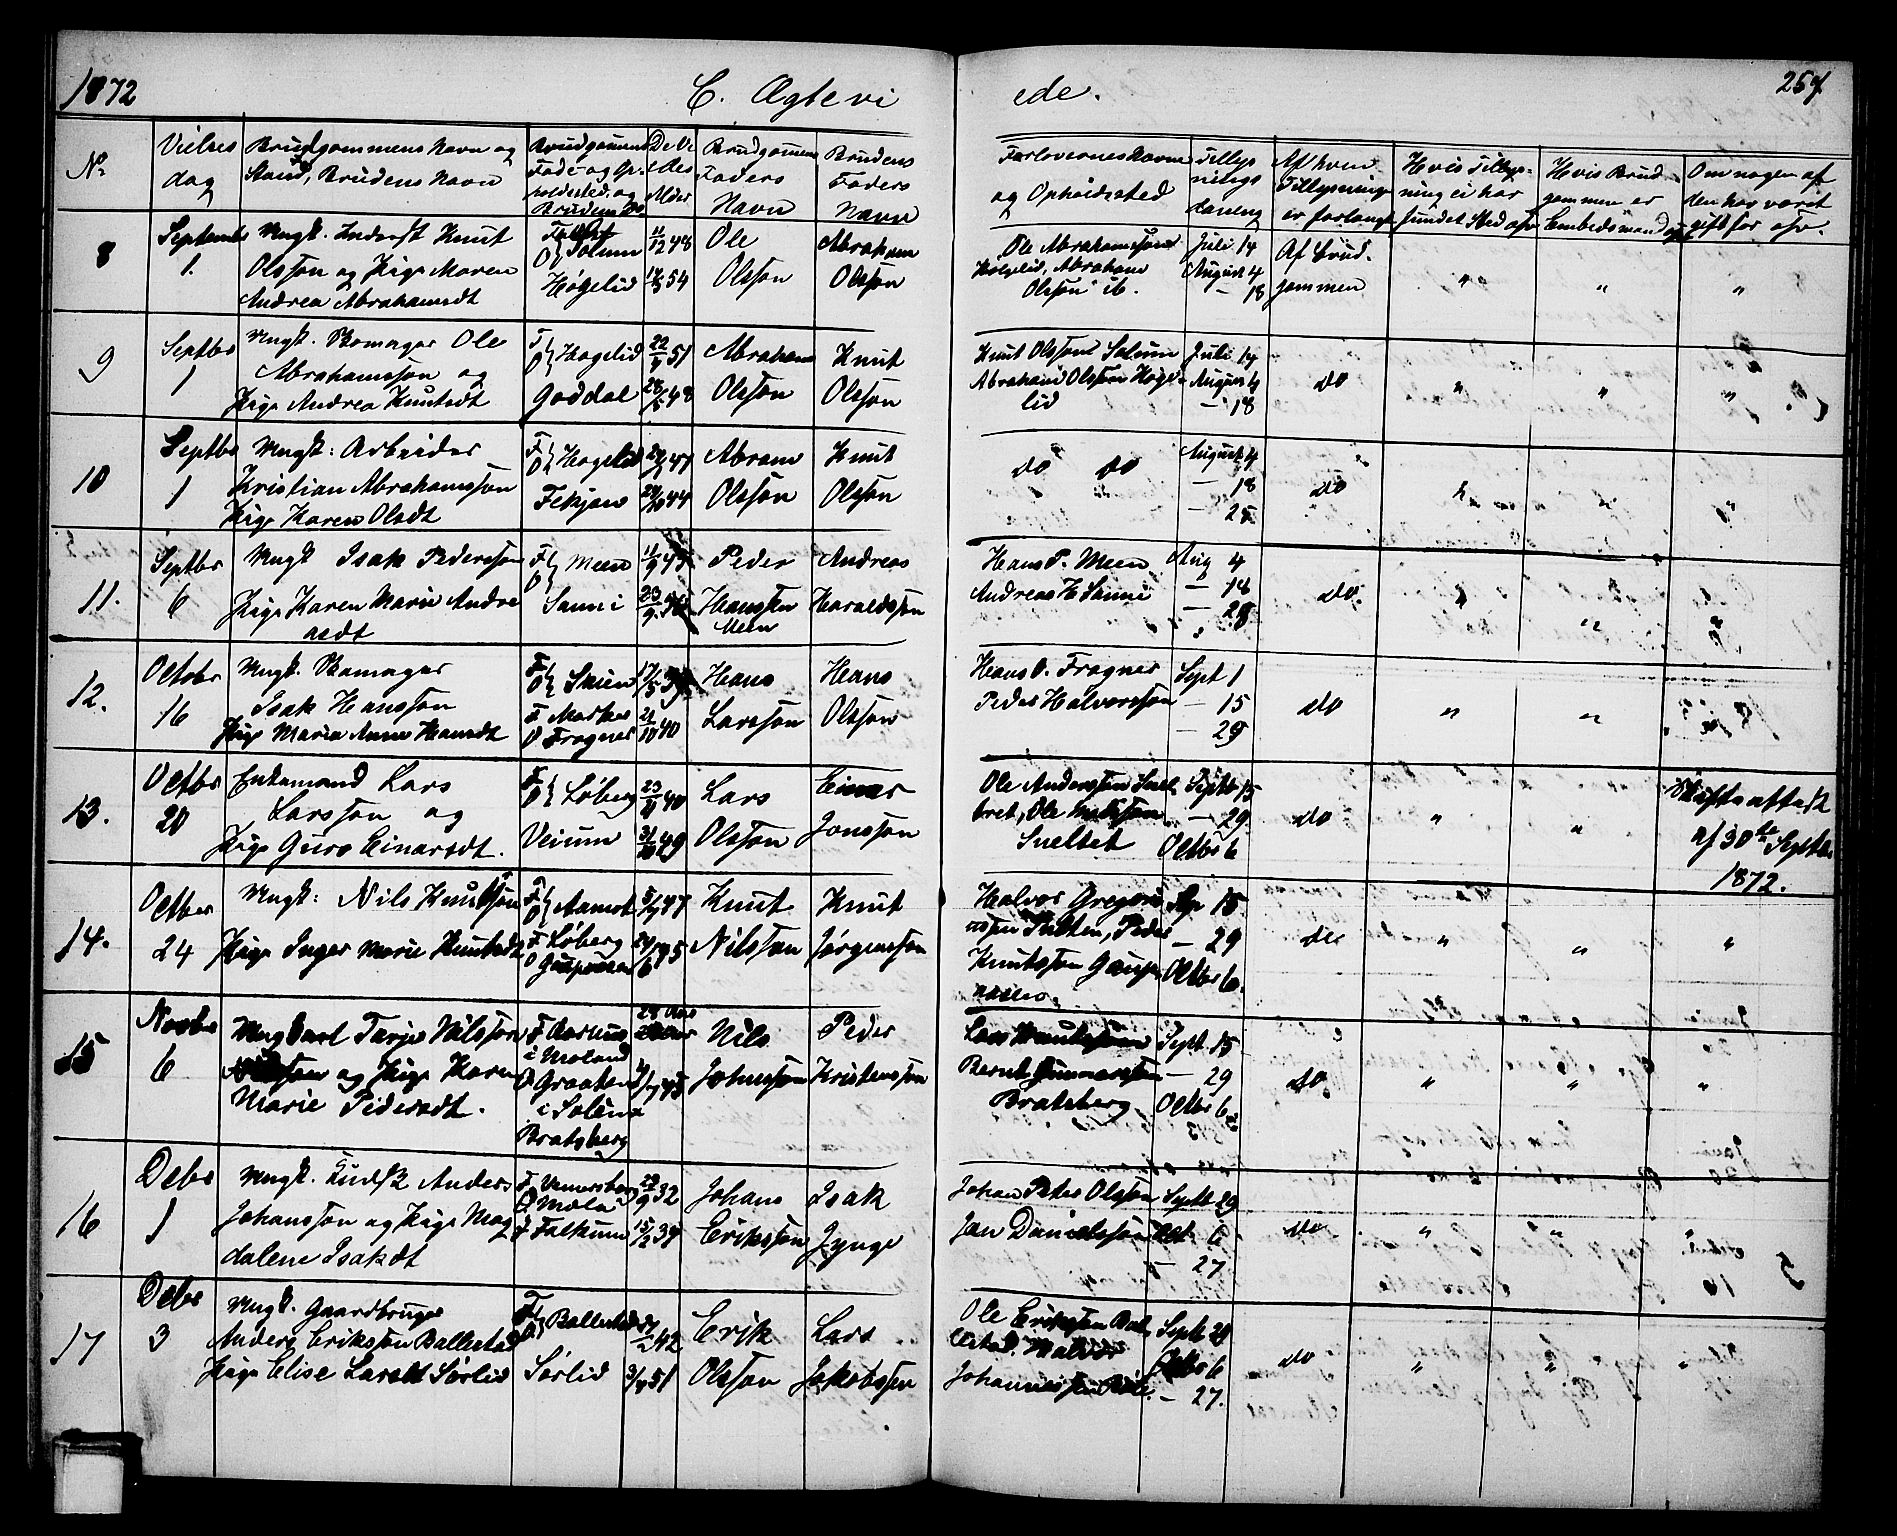 1872 C. Ægtevi ede. 257
No
Vielses dag
Brudgommens Navn og Stand, Brudens Navn
Brudgommens Føde- og Opholdssted og Brudens do
De Vi edes Alder
Brudgommens Faders Navn
Brudens Faders Navn
Forlovernes Navne og Opholdssted
Tillysnings datoing
Af hvem Tillysning er forlangt
Hvis Tillysning ei har fundet Sted osv
Hvis Brudgommen er Embedsmand
Om nogen af den har været gift før osv.
8
Septembr 1.
Ungk. Inderst Knut
Olsson og Pige Maren
Andrea Abrahamsdt
Solum
Høgelid
11/12 48
54
Ole Olsson
Abraham Olsson
Ole Abrahamsson
Høgelid, Abraham
Olsson ib.
Juli 14
August 4
— 18
Af Brudgommen
" " "
9
Septbr 1
Ungk. Skomager Ole
Abrahamsson og
Pige Andrea Knutsdt
F. O. Høgelid
Goddal
22/4 51
28/5 48
Abraham Olsson
Knut Olsson
Knut Olsson Solum
Abraham Olsson Høgelid
Juli 14
August 4
— 18
do
" " "
10
Septbr 1
Ungk: Arbeider
Kristian Abrahamsson
Pige Karen Olsdt
F. O. Høgelid
Fekjan
47
44
Abram Olsson
Knut Olsson
do do
August 4
— 18
— 25
do
" " "
11.
Septbr 6
Ungk Isak Pedersson
Pige Karen Marie Andreasdt
F. O. Meen
Sanni
11/9 47
23/9
Peder Hansson Meen
Andreas Haraldsson
Hans P. Meen
Andreas H Sanni
Aug 4
— 14
— 28
do.
" " "
12.
Octobr 16
Ungk. Skomager
Isak Hansson
Pige Maria Anne Hansdt
F. O. Skien
F Marker
O Frogner
21/10 40
Hans Larsson
Hans Olsson
Hans O. Frogner
Peder Halvorsson
Sept 1
— 15
— 29
do
" "
13.
Octbr 20
Enkemand Lars
Larsson og
Pige Guro Einarsdt.
F. O. Løberg
Veium
40
31/10 49
Lars Olsson
Einar Jonsson
Ole Andersson Sneltvet, Ole Mattisson
Sneltvet
Septbr 15
— 29
Octbr 6
do
" "
Skifteattest
af 30te Septbr
1872.
14.
Octber 24
Ungk: Nils Knutsson
Pige Inger Marie Knutsdt
F. O. Aamot
F Løberg
5/7 47
Knut Nilsson
Knut Jørgensson
Halvor Gregoriusson Peder
Knutsson
Sep 15
— 29
Octbr 6.
do
" " "
15
Novbr 6
Ungkarl Tarje Nilsson
og Pige Karen
Marie Pedersdt.
F Aasnus
i Moland
O Graaten
i Solum
Bratsberg
28 Aar
Nils Johnsson
Peder Kristensson
Lars Knutsson
Bernt Gunnarsson
Bratsberg
Sept 15
— 29
Octbr 6
do
" " "
16
Debr 1
Ungk. Anders
Johansson og Pige Magdalene Isakdt
F Venersborg
O Mæla
F Falkum
29/9 32
15/2 39
Johans Eriksson
Isak Jynge
Johan Peter Olsson
Jan Danielsson
Septb 29
Oct 6
— 27
do
" " "
17
Debr 3
Ungk. Gaardbruger
Anders Eriksson Ballestad
Pige Elise Larsdt Sørlid
F. O. Ballestad
Sørlid
42
3/4 51
Erik Olsson
Lars Jakobssen
Ole Eriksson Ballestad, Halvor
Johannesson
Septb 29
Octbr 6
— 27.
do
" " "